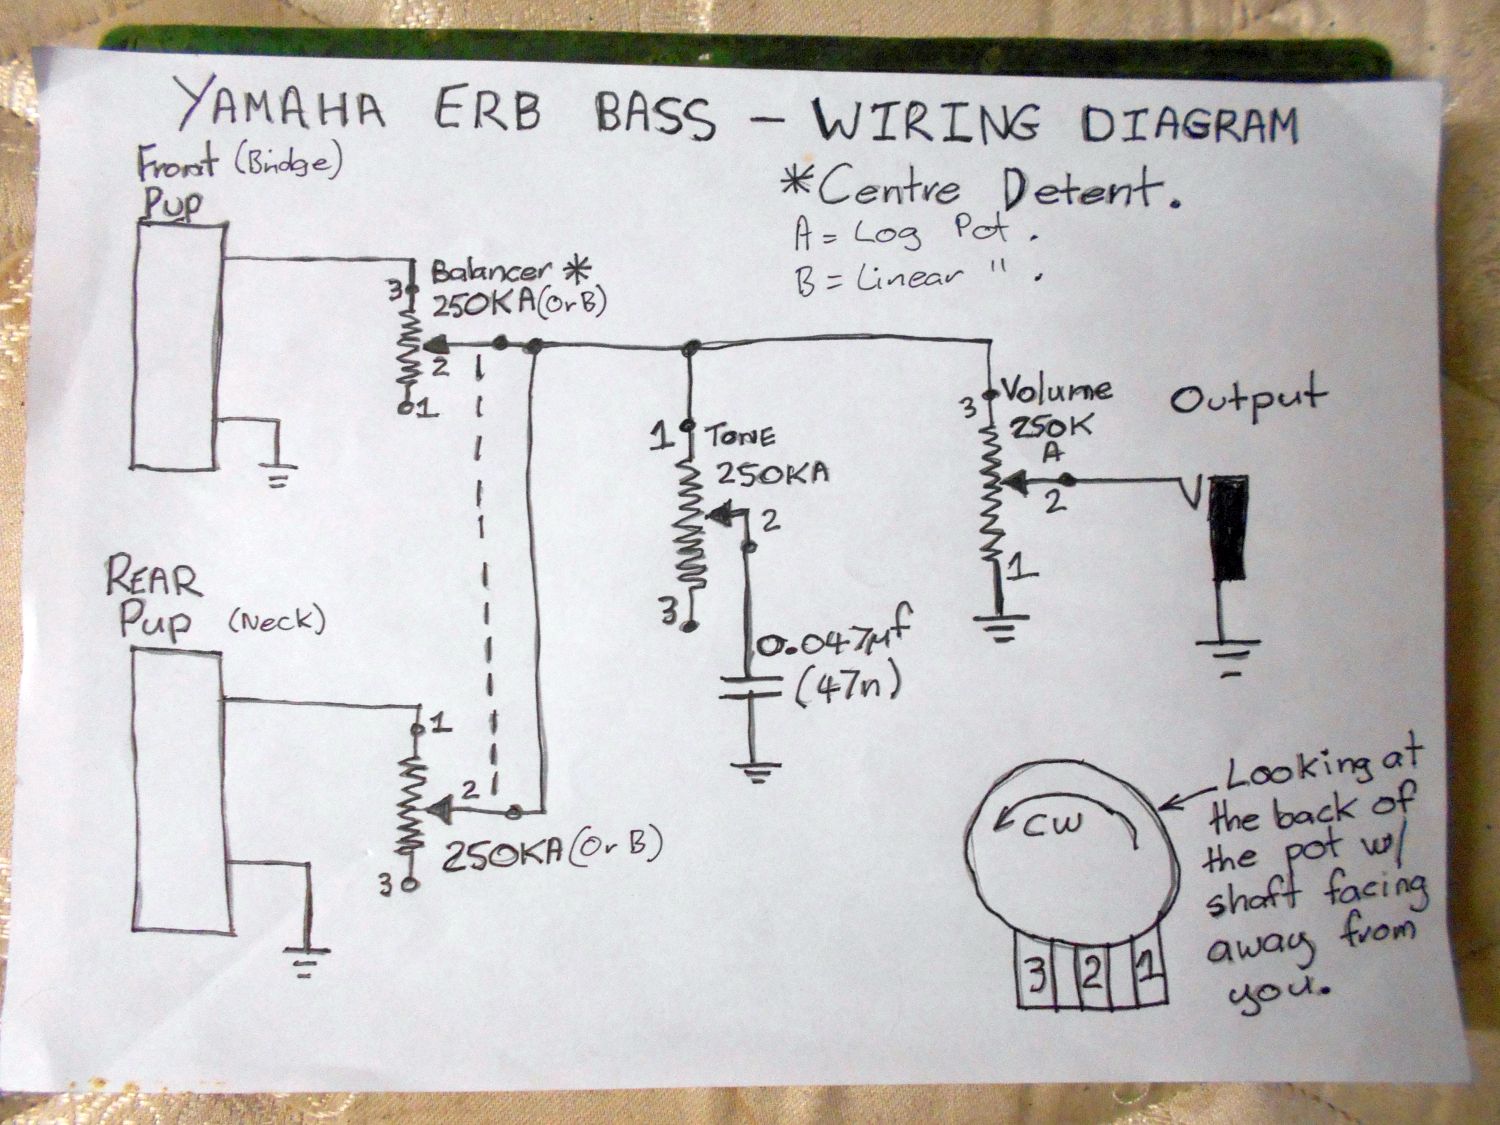 YAMAHA ERB BASS – WIRING DIAGRAM
Front (Bridge)
Pup
*Centre Detent.
A = Log Pot.
B = Linear " .
Balancer *
250KA (Or B)
3
2
1
Volume
250K
A
3
2
1
Output
1
TONE
250KA
2
3
0.047µf
(47n)
REAR
Pup (Neck)
1
2
250KA (Or B)
3
Looking at
the back of
the pot w/
shaft facing
away from
you.
CW
3 2 1